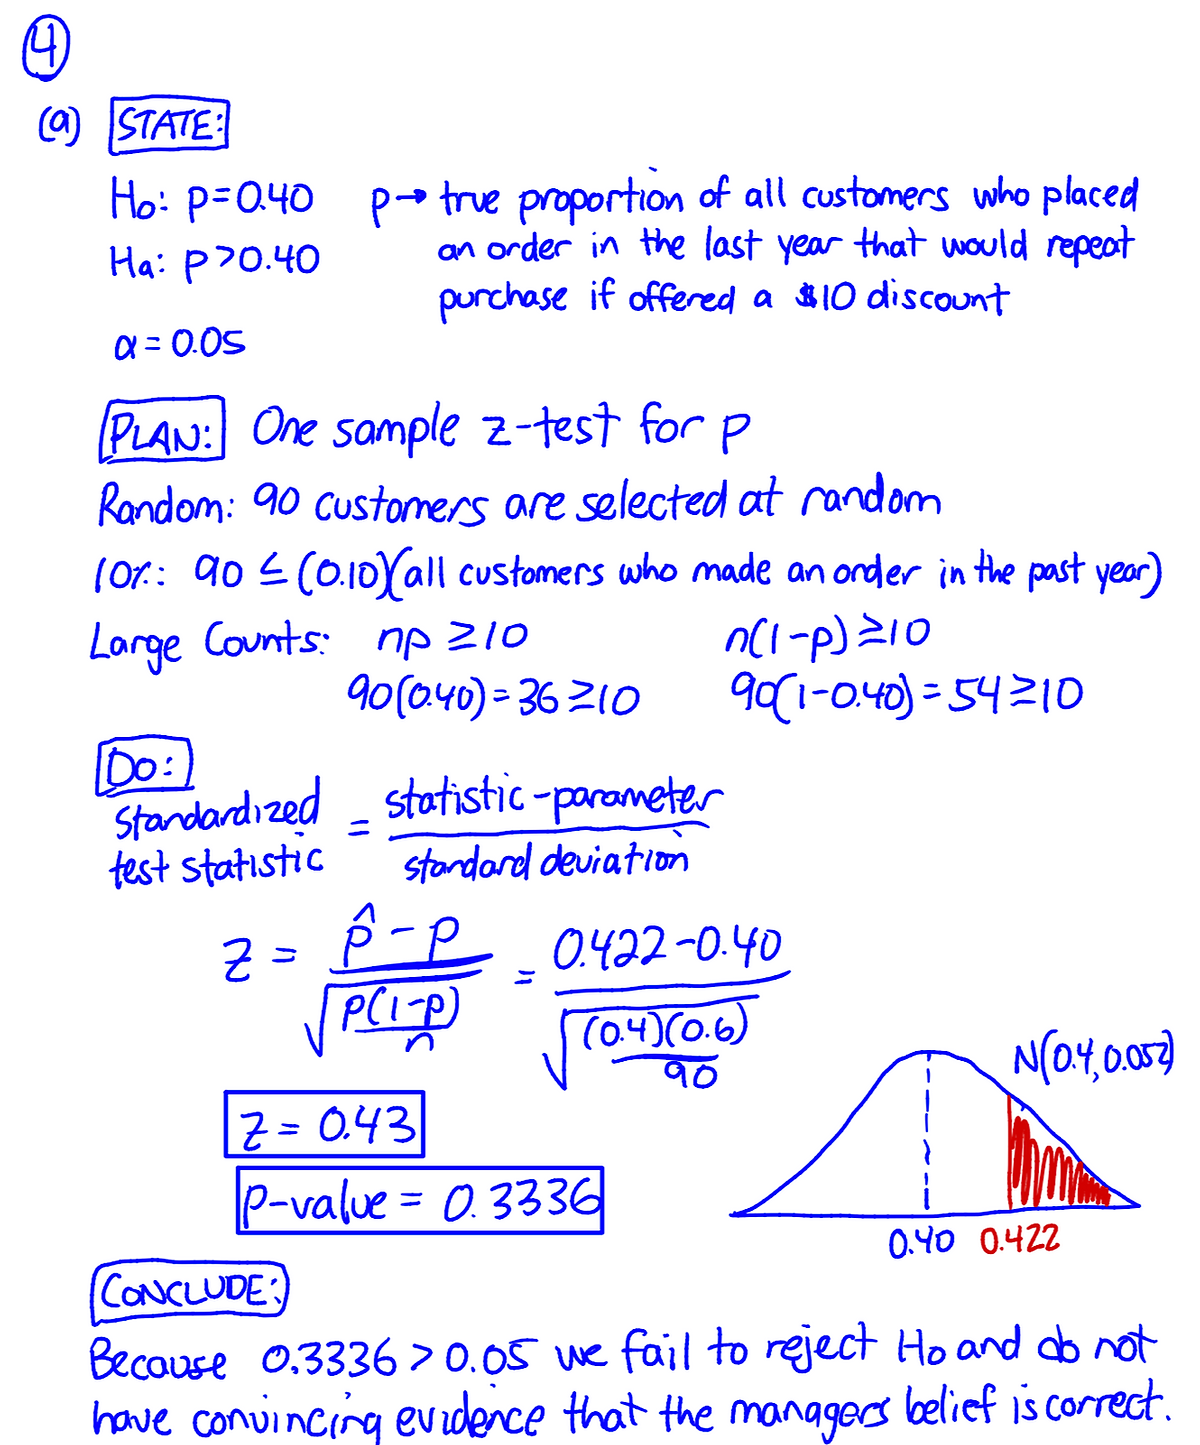 4
(a) STATE:
H₀: p=0.40 p→ true proportion of all customers who placed
Ha: p>0.40 an order in the last year that would repeat
purchase if offered a $10 discount
α=0.05
PLAN: One sample z-test for p
Random: 90 customers are selected at random
10%: 90 ≤ (0.10)(all customers who made an order in the past year)
Large Counts: np ≥10 n(1-p) ≥10
90(0.40)=36≥10 90(1-0.40)=54≥10
Do:
standardized test statistic = statistic-parameter / standard deviation
z = p̂-p / √(p(1-p)/n) = 0.422-0.40 / √((0.4)(0.6)/90)
N(0.4,0.052)
z= 0.43
p-value= 0.3336
0.40 0.422
CONCLUDE:
Because 0.3336>0.05 we fail to reject H₀ and do not
have convincing evidence that the managers belief is correct.